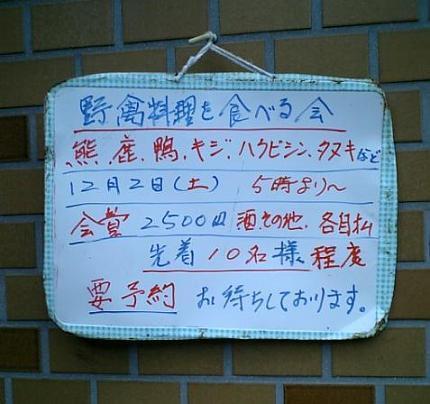 野禽料理を食べる会
熊、鹿、鴨、キジ、ハクビシン、タヌキなど
12月2日(土) 5時より〜
会費 2500円 酒、その他、各自払
先着10名様程度
要予約 お待ちしております。